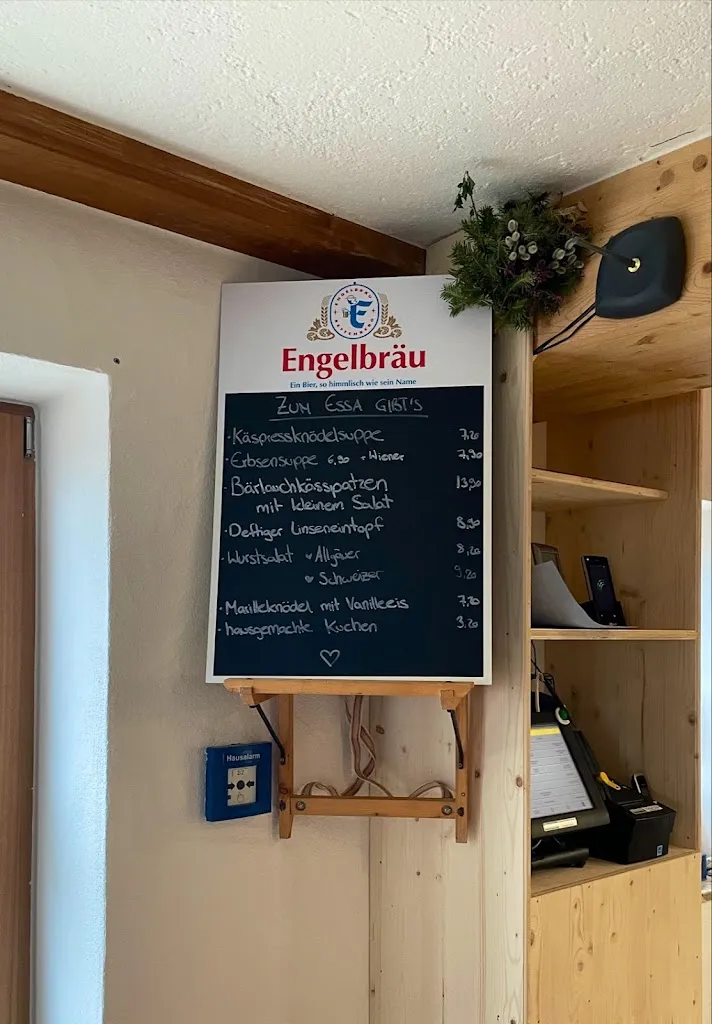 ENGELBRÄU
RETTENBERG
Engelbräu
Ein Bier, so himmlisch wie sein Name
ZUM ESSA GIBT'S
· Käspressknödelsuppe 7,20
· Erbsensuppe 6,90 + Wiener 7,90
· Bärlauchkässpatzen 13,90
mit kleinem Salat
· Deftiger Linseneintopf 8,90
· Wurstsalat ♥ Allgäuer 8,20
♥ Schweizer 9,20
· Marilleknödel mit Vanilleeis 7,20
· hausgemachte Kuchen 3,20
♡
Hausalarm